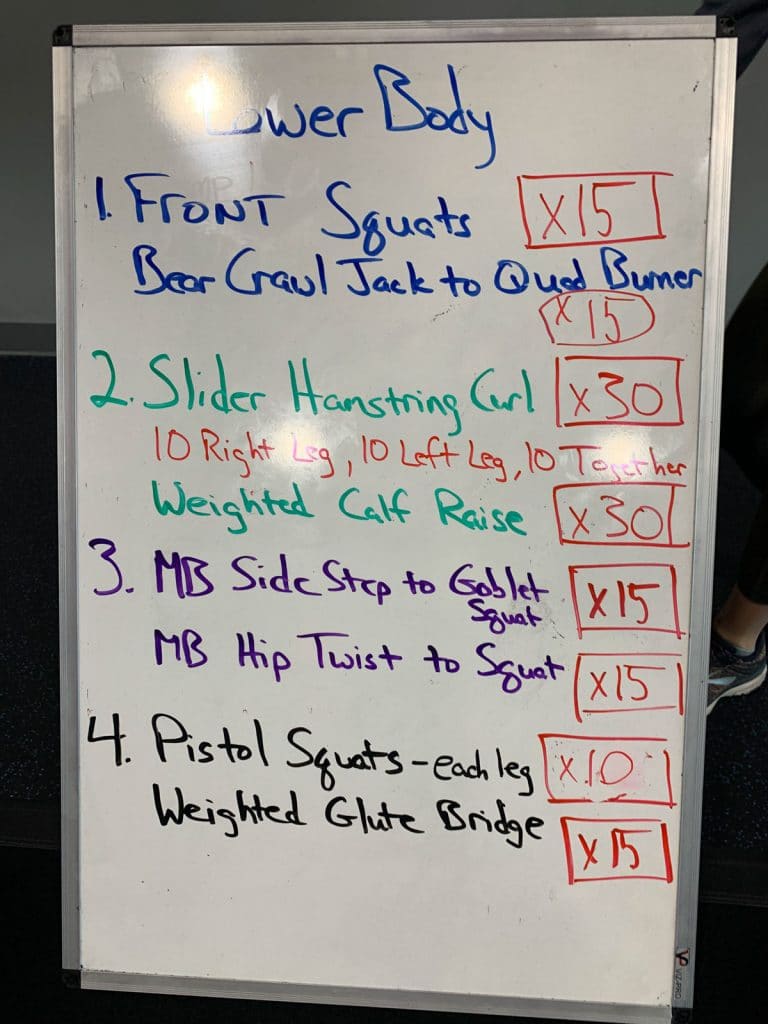 Lower Body
1. FRONT Squats x15
Bear Crawl Jack to Quad Burner
x15
2. Slider Hamstring Curl x30
10 Right Leg, 10 Left Leg, 10 Together
Weighted Calf Raise x30
3. MB Side Step to Goblet
Squat x15
MB Hip Twist to Squat x15
4. Pistol Squats - each leg x10
Weighted Glute Bridge x15
VIZ-PRO